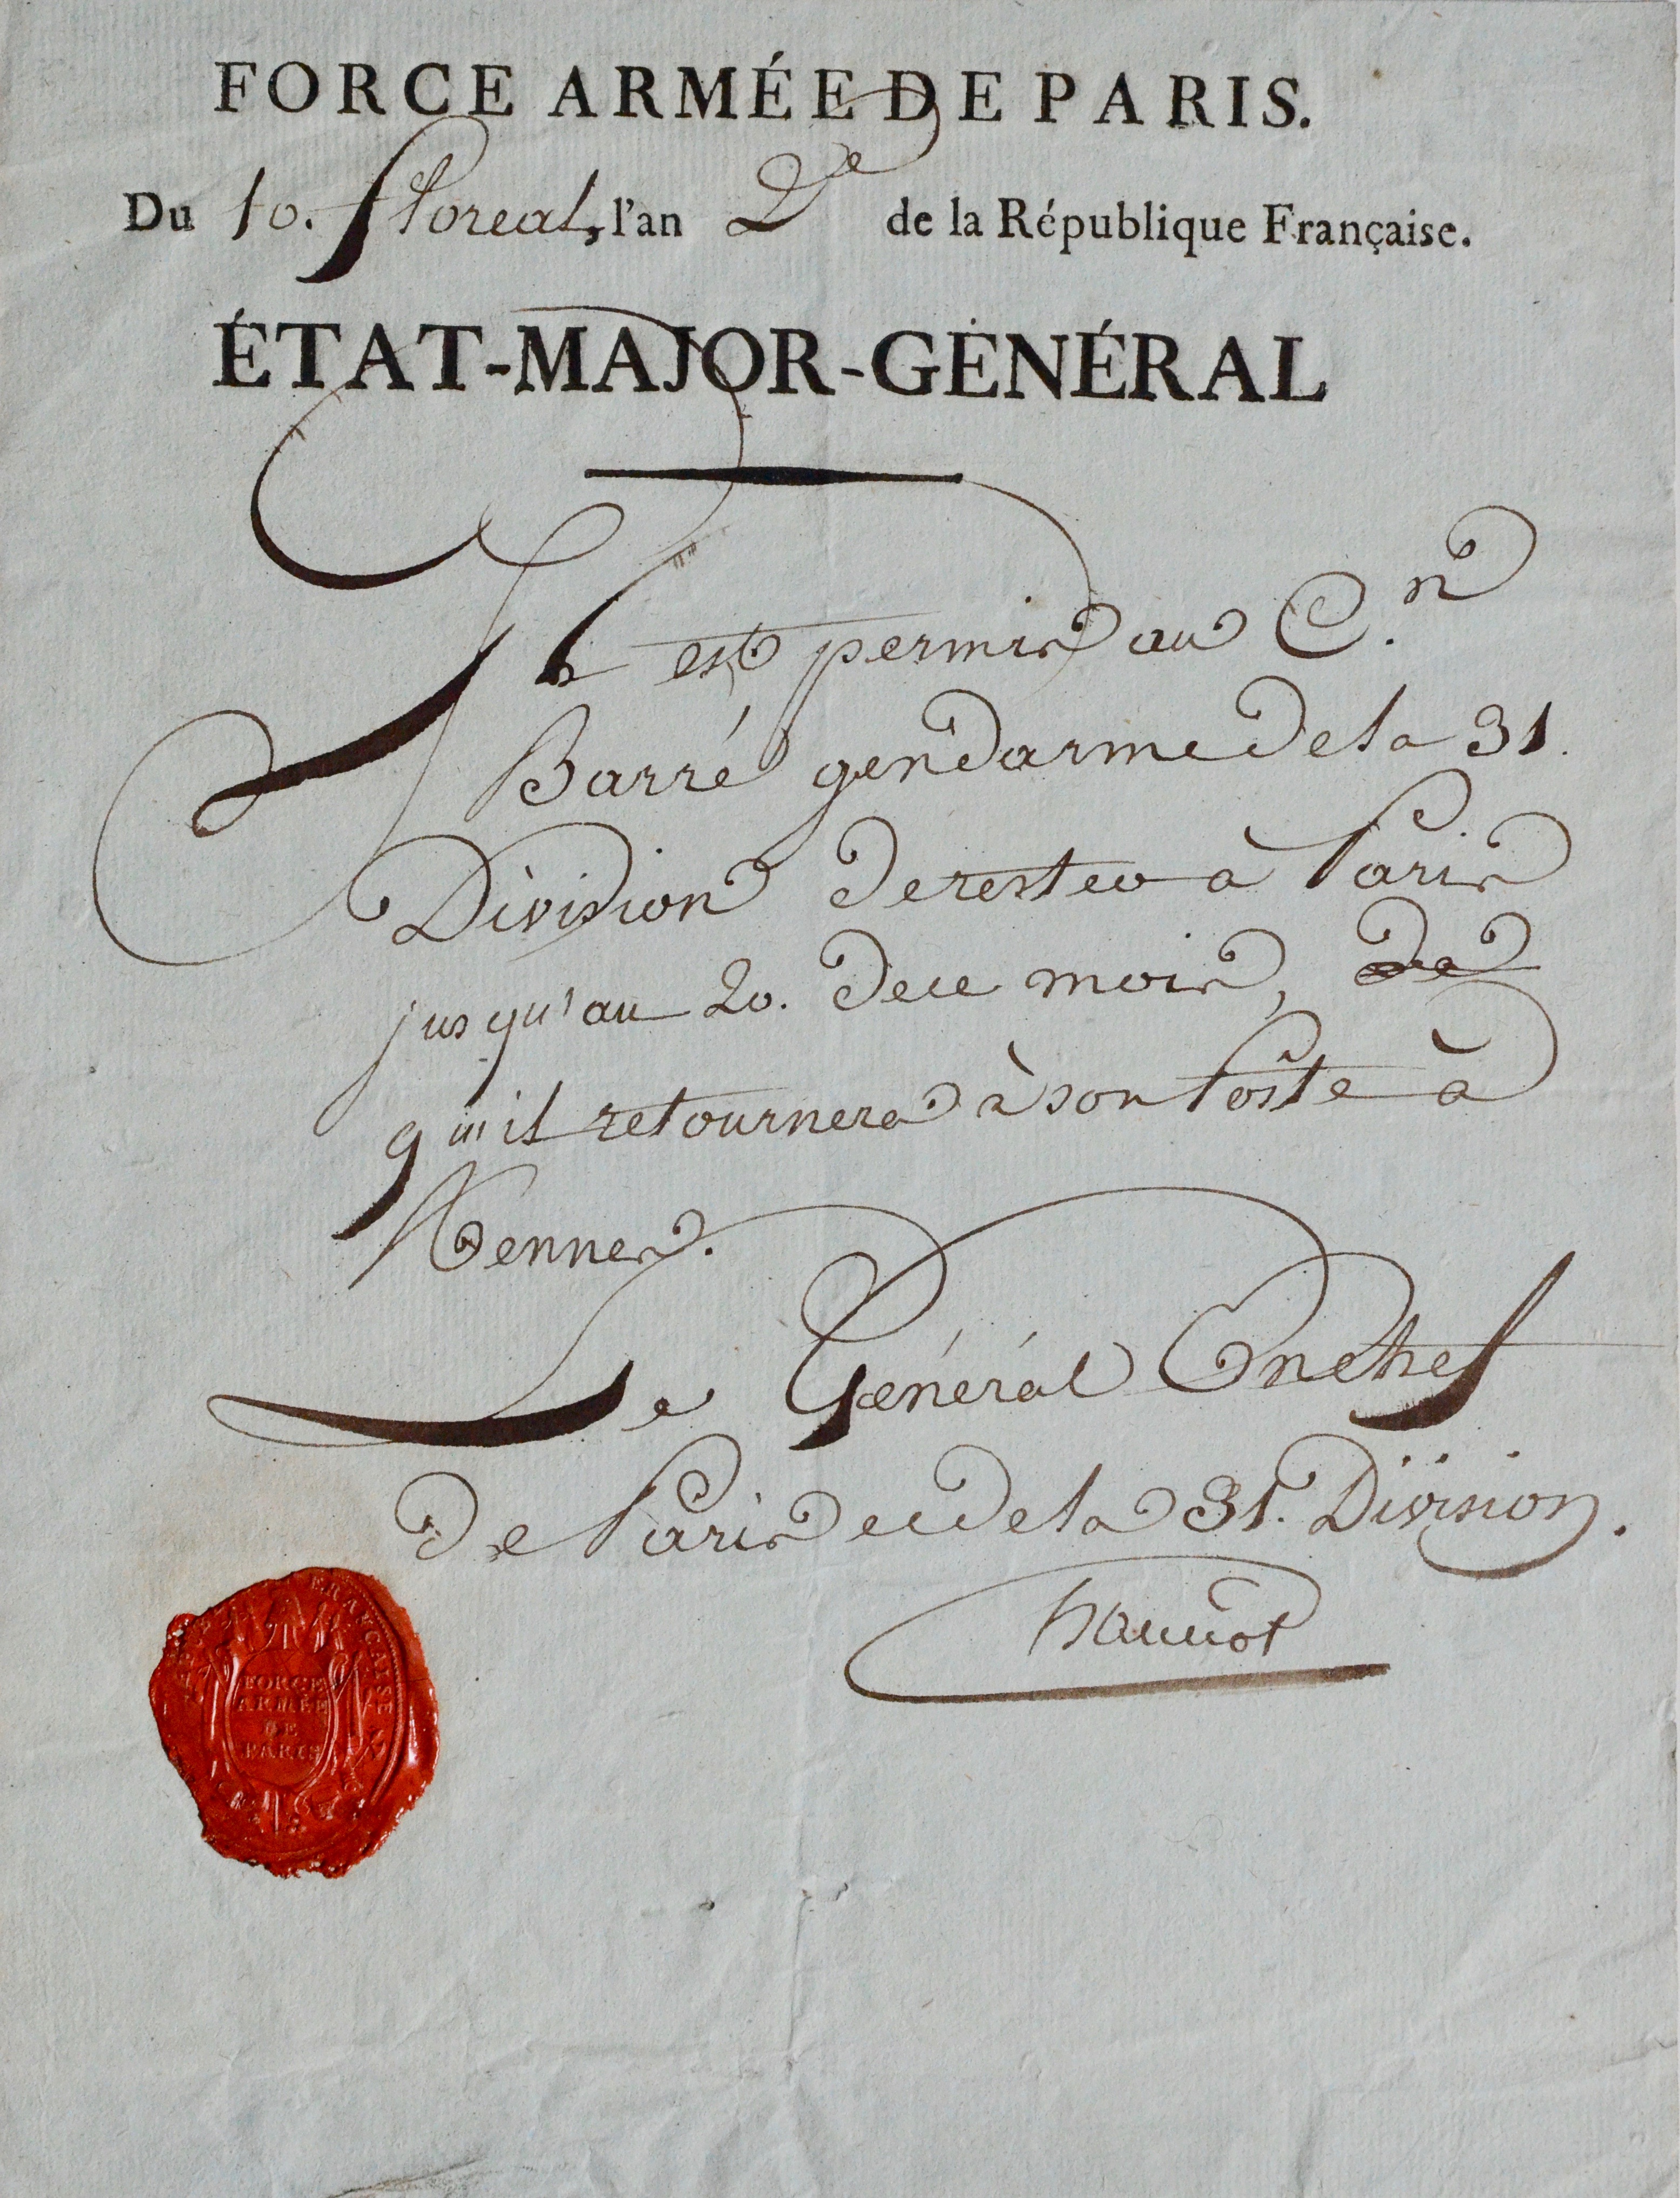 FORCE ARMÉE DE PARIS.
Du 10. floreal, l'an 2e de la République Française.
ÉTAT-MAJOR-GÉNÉRAL
Il est permis au C.n
Barré gendarme de la 31.
Division de rester à Paris
jusqu'au 20. de ce mois,
qu'il retournera à son Poste à
Rennes.
Le Général En chef
de Paris et de la 31. Division.
hanriot
FRANÇAISE
FORCE
ARMÉE
DE
PARIS